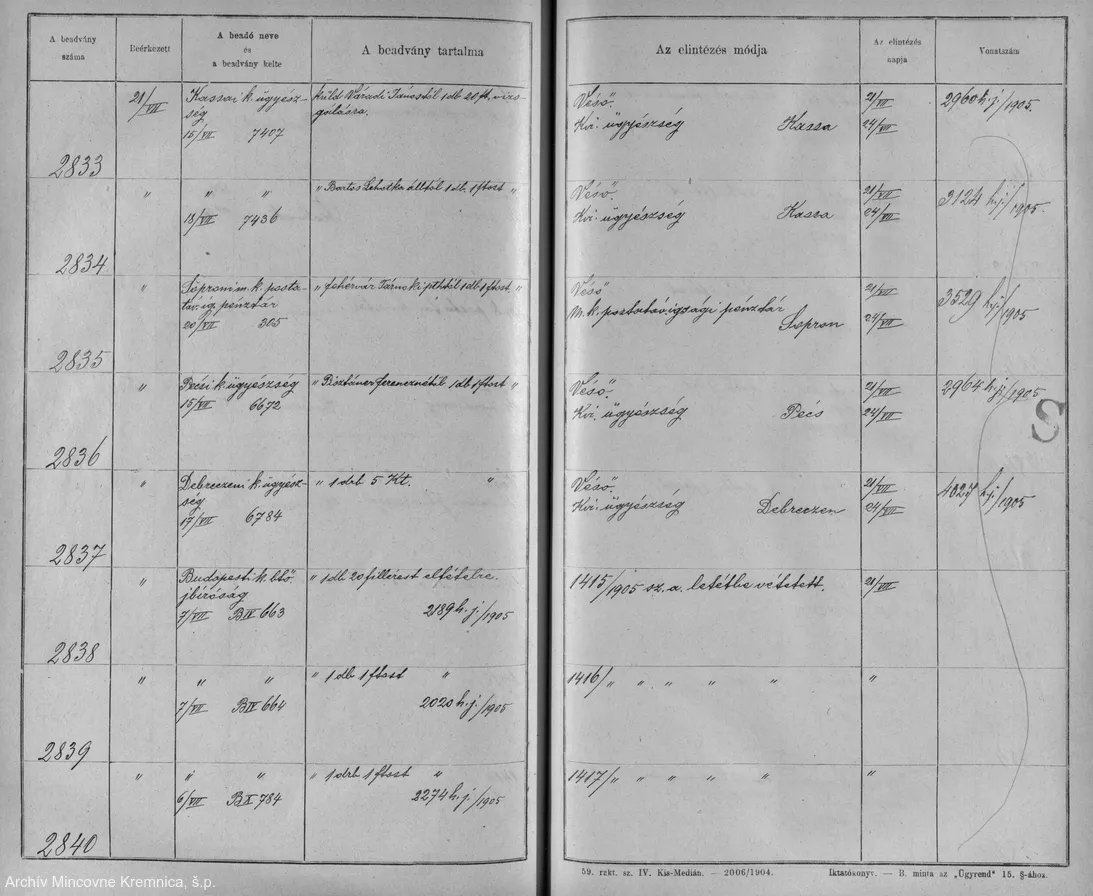 A beadvány
száma
Beérkezett
A beadó neve
és
a beadvány kelte
A beadvány tartalma
Az elintézés módja
Az elintézés
napja
Vonatszám
2833
21/VII
Kassai k. ügyész-
ség
15/VII 7407
küld Váradi Jánostól 1 db 20 ft. vizs-
gálásra.
Véső.
Kir. ügyészség Kassa
21/VII
24/VII
2960 h.j./1905.
2834
" " "
18/VII 7436
" Bartos Lehotka 1 db. 1 ftost "
Véső.
Kir. ügyészség Kassa
21/VII
24/VII
3124 h.j./1905.
2835
"
Soproni m. k. posta-
táv. ig. pénztár
20/VII 305
" fehérvár 1 db 1 ftost. "
Véső
M. k. postatávigazgi pénztár
Sopron
21/VII
24/VII
3529 h.j./1905
2836
"
Pécsi k. ügyészség
15/VII 6672
" ferencznétől 1 db 1 ftost "
Véső.
Kir. ügyészség Pécs
21/VII
24/VII
2964 h.j./1905
S
2837
"
Debreczeni k. ügyész-
ség
17/VII 6784
" 1 drb 5 Kt. "
Véső.
Kir. ügyészség Debreczen
21/VII
24/VII
4027 h.j./1905
2838
"
Budapesti k. btő.
jbíróság
7/VII B IX 663
" 1 db 20 fillérest eltételre.
2189 h.j./1905
1415/1905 sz. a. letétbe vétetett.
21/VII
2839
" " "
7/VII B IX 664
" 1 db 1 ftost "
2020 h.j./1905
1416/" " " " "
"
2840
" " "
6/VII B X 784
" 1 drb 1 ftost "
2274 h.j./1905
1417/" " " " "
"
59. rzkt. sz. IV. Kis-Medián. — 2006/1904.
Iktatókönyv. — B. minta az „Ügyrend" 15. §-ához.
Archív Mincovne Kremnica, š.p.